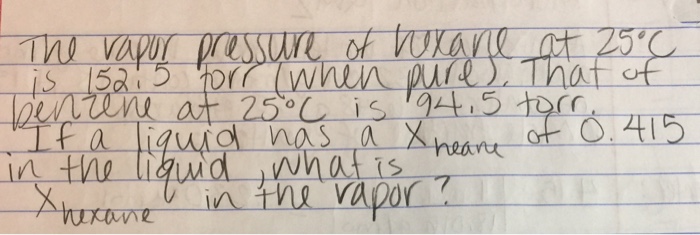 The vapor pressure of hexane at 25°C
is 152.5 torr (when pure). That of
benzene at 25°C is 94.5 torr.
If a liquid has a X heane of 0.415
in the liquid, what is
X hexane in the vapor?